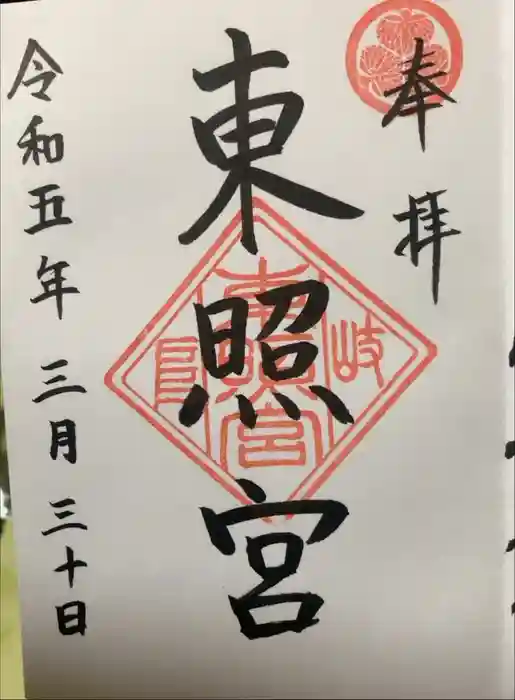 奉拝
東照宮
岐阜
東照宮
令和五年 三月 三十日